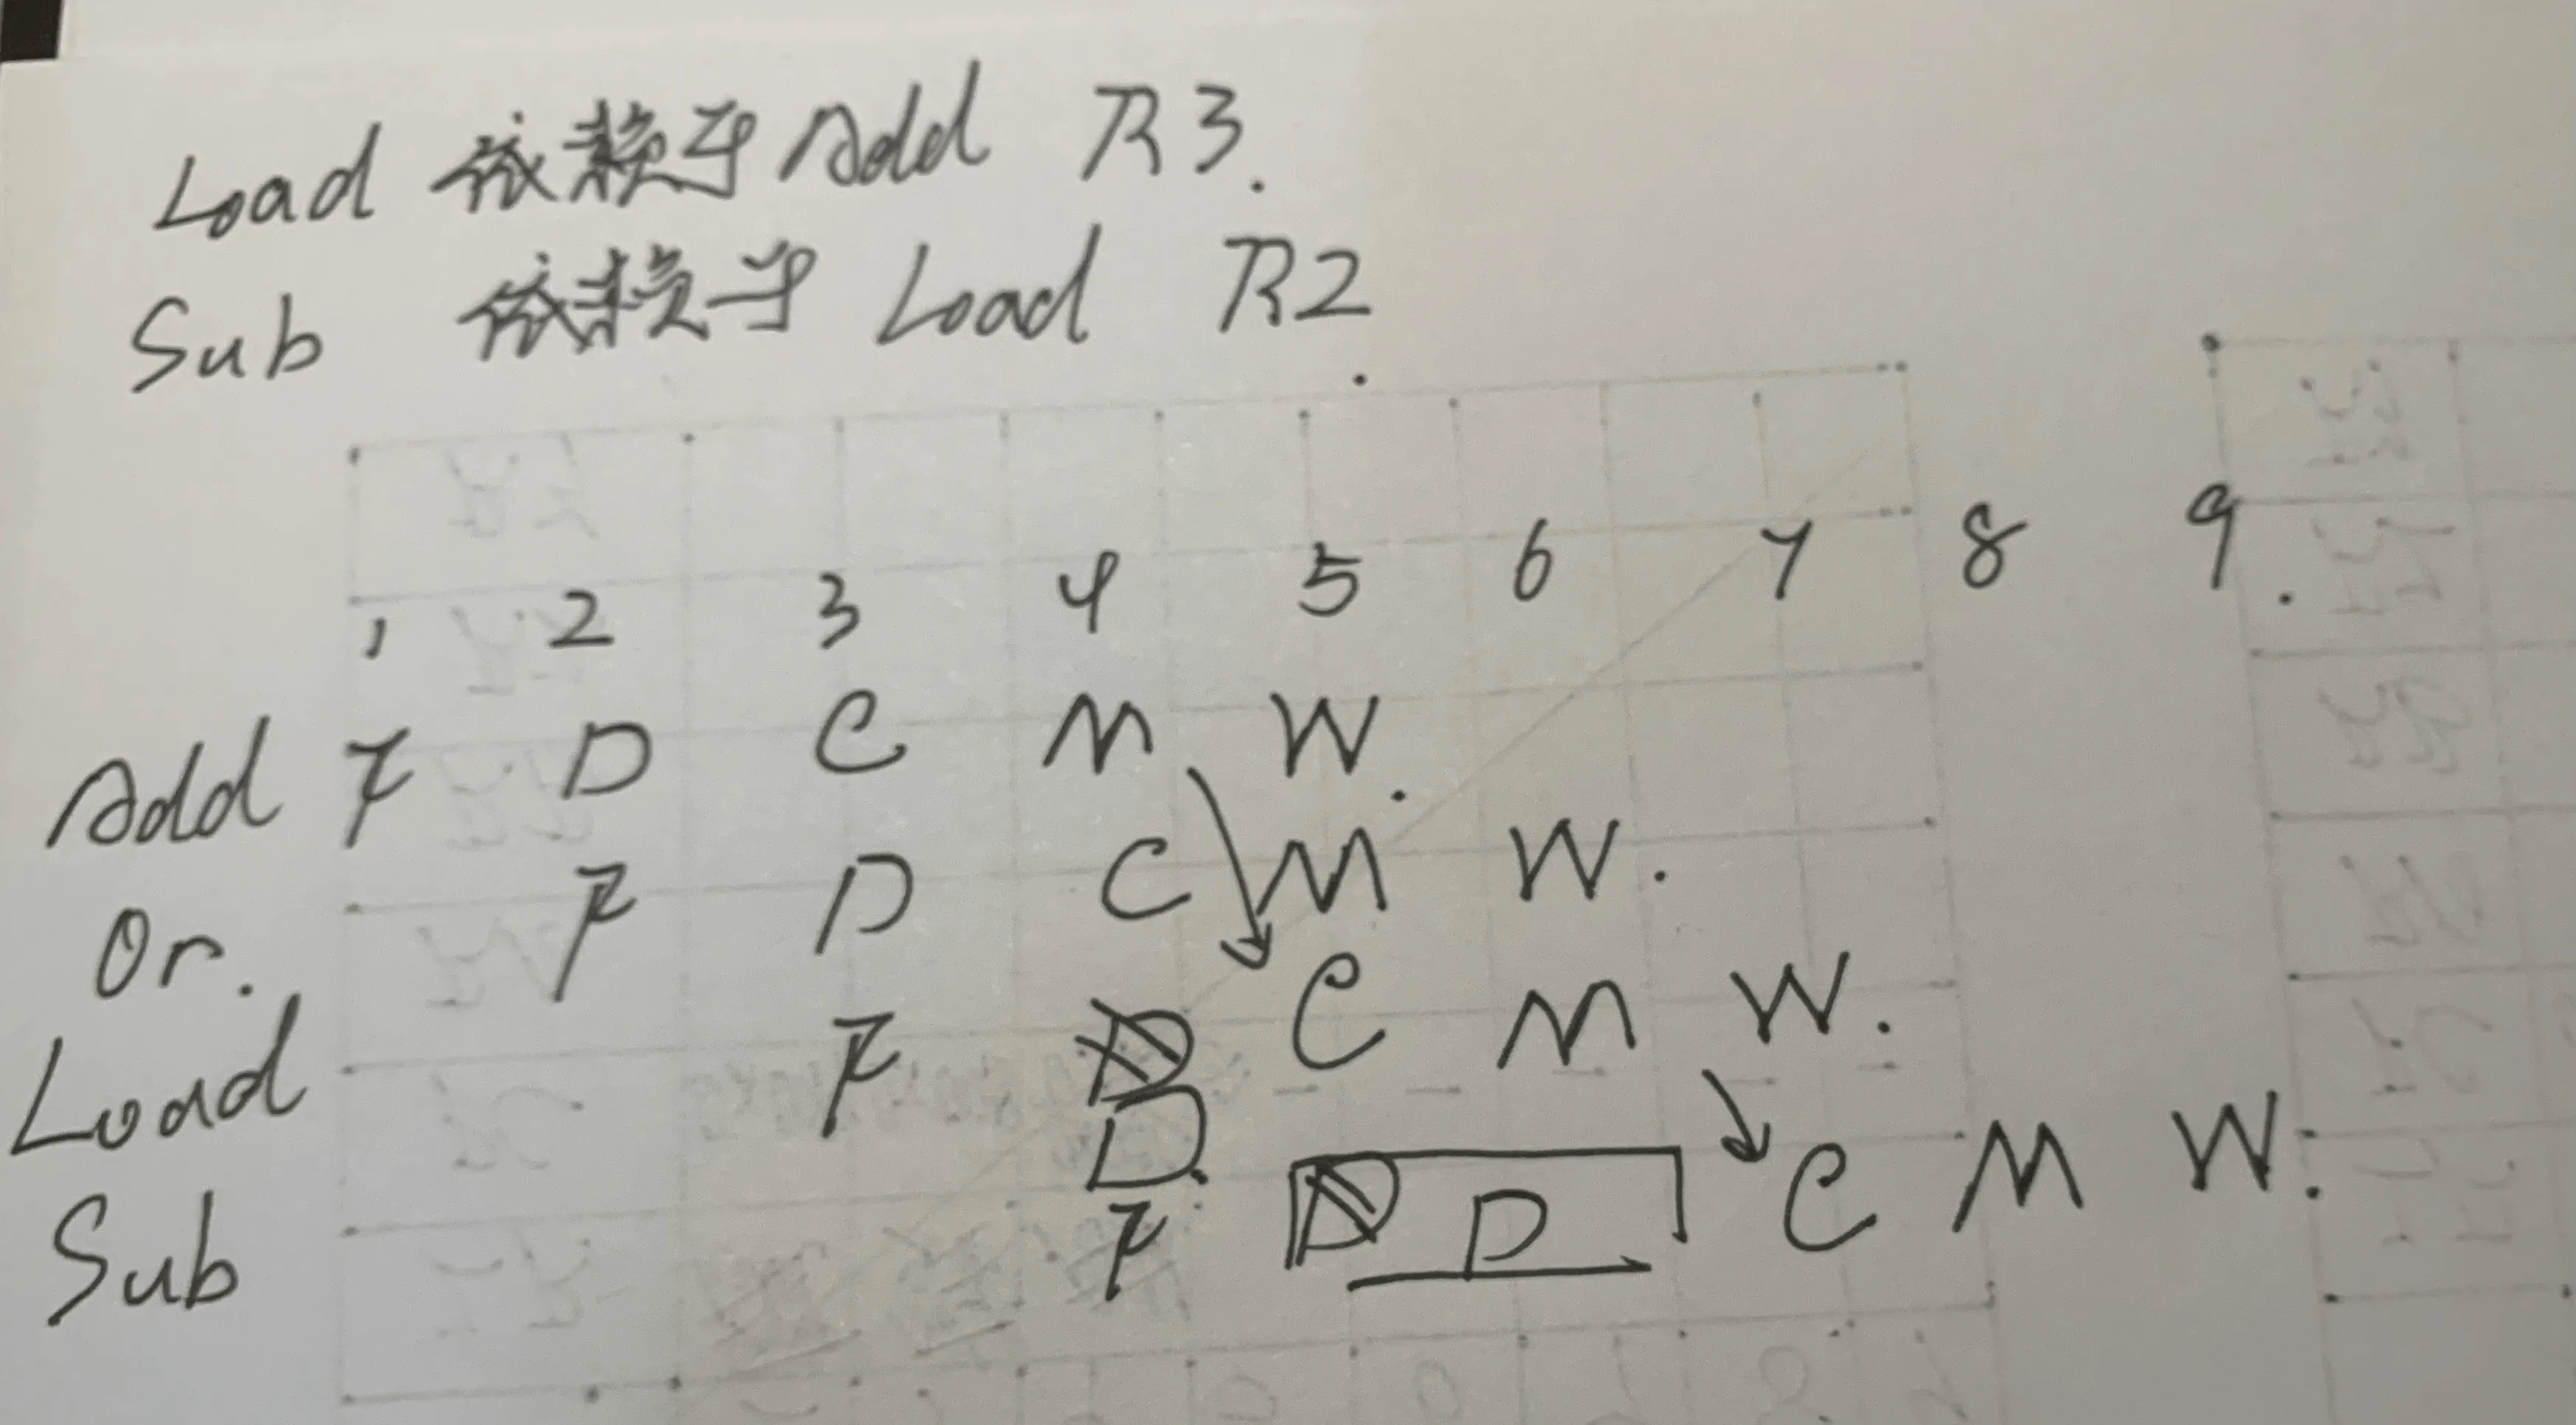 Load 依赖于 Add R3.
Sub 依赖于 Load R2.
1 2 3 4 5 6 7 8 9.
Add F D C M W.
Or. F D C M W.
Load F D C M W.
D.
Sub F D D C M W.